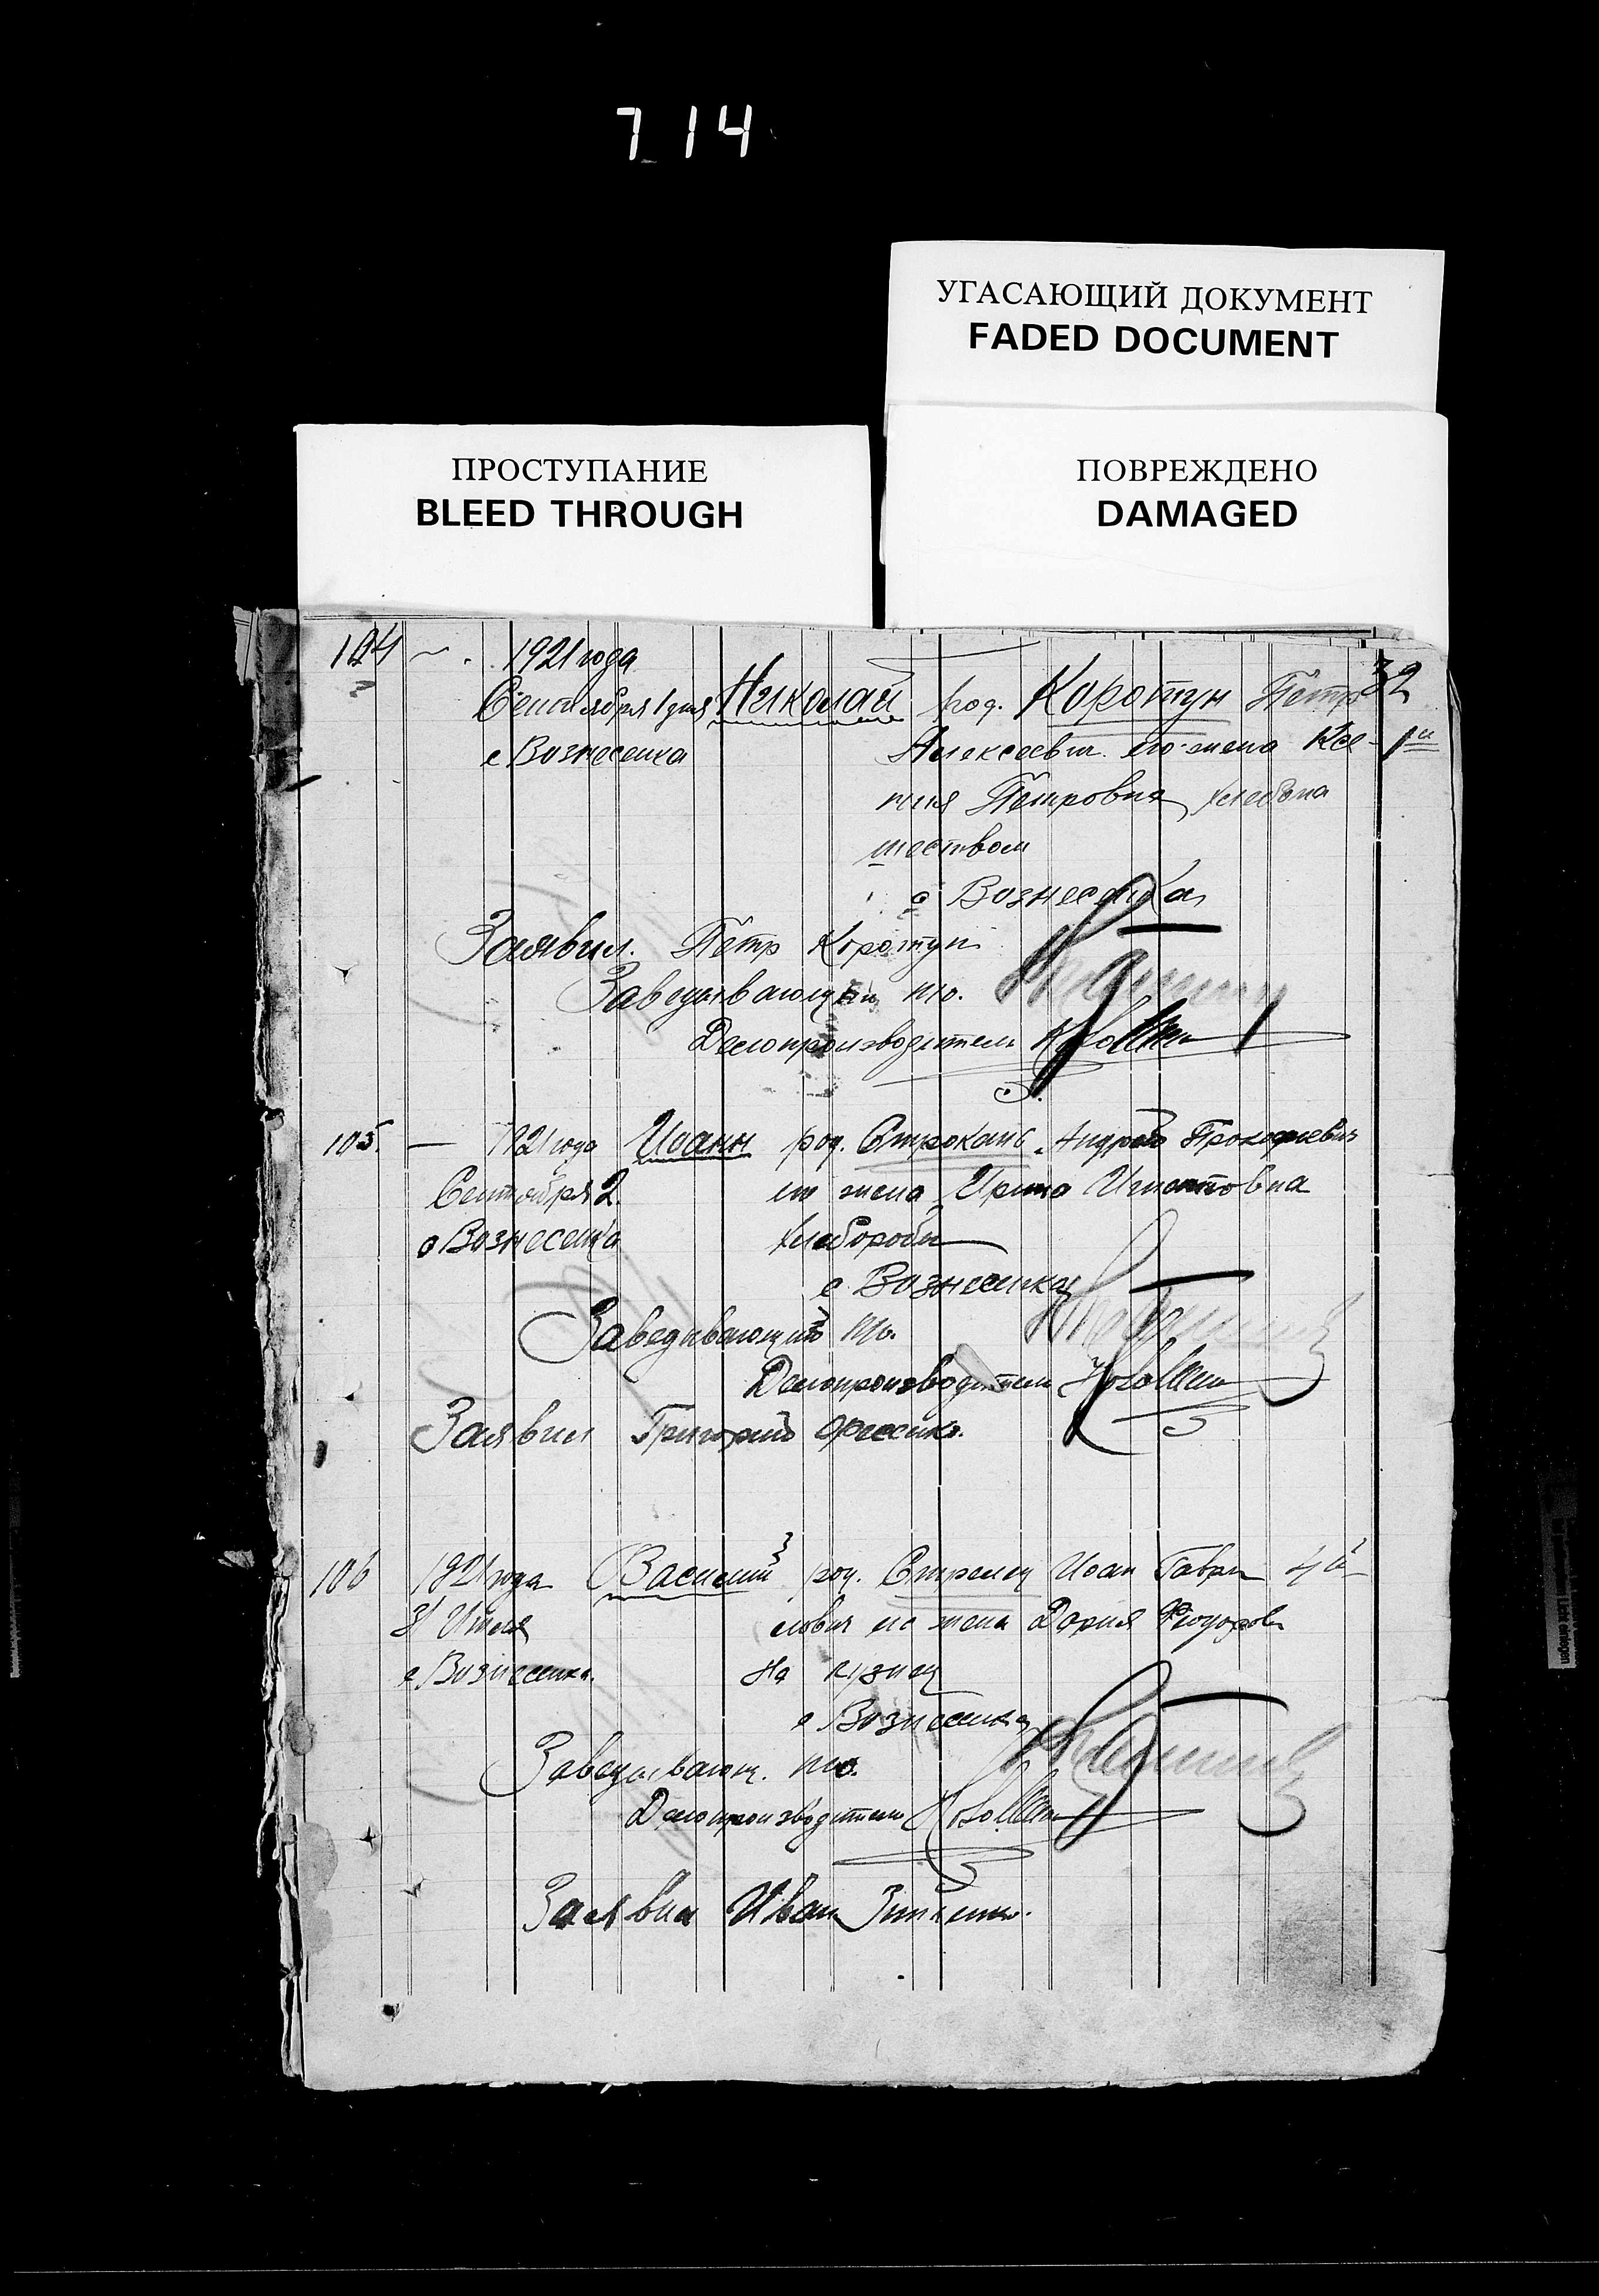 714
УГАСАЮЩИЙ ДОКУМЕНТ
FADED DOCUMENT
ПРОСТУПАНИЕ
BLEED THROUGH
ПОВРЕЖДЕНО
DAMAGED
32
104 1921 года
Сентября 1 дня Николай род. Коротун Петр
с Вознесенка Алексеевич его жена Ксе- 1й
ния Петровна хлебопа
шеством
с Вознесенка
Заявил. Петр Коротун
Заведывающий п/о.
Делопроизводитель
105 — 1921 года Иоанн род. Строкань Андрей Прокофиевич
Сентября 2. его жена Ирина Игнатовна
с Вознесенка хлеборобы
с Вознесенка
Заведывающий п/о.
Делопроизводитель
Заявил Григорий
106 1921 года Василий род. Стрелец Иоан Гаври 4й
31 Июля лович его жена Дария Фиодоров
с Вознесенка. на кузнец
с Вознесенка
Заведывающ. п/о.
Делопроизводитель
Заявил Иван